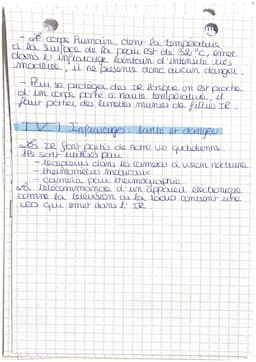 - Le corps humain, dont la température
à la surface de la peau est de 32°C, émet
dans l'infrarouge lointain d'intensité très
modérée, il ne présente donc aucun danger.
- Pour se protéger des IR lorsque on est proche
d'un corps porté à haute température, il
faut porter des lunettes munies de filtres IR.
IV) Infrarouges : santé et danger
Les IR font partis de notre vie quotidienne.
Ils sont utilisés pour
- recepteurs dans les caméras à vision nocturne
- thermomètres médicaux
- caméra pour thermographie.
La télécommande d'un appareil électronique
comme la télévision ou la radio contient une
LED qui émet dans l'IR.